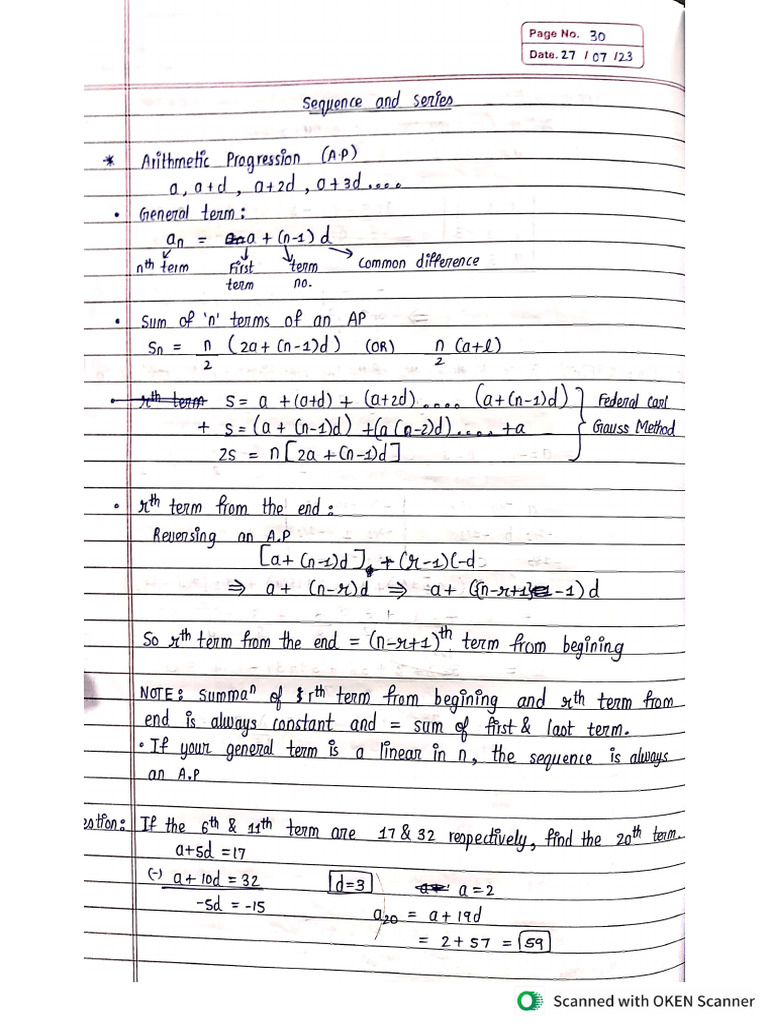 Page No. 30
Date. 27 / 07 /23
Sequence and series
* Arithmetic Progression (A.P)
a, a+d, a+2d, a+3d....
• General term:
an = a + (n-1) d
nth term First term Common difference
term no.
• Sum of 'n' terms of an AP =
Sn = n/2 (2a + (n-1)d) (OR) n/2 (a+l)
• rth term S = a + (a+d) + (a+2d) .... (a+(n-1)d) Federal Carl
+ S = (a + (n-1)d) + (a (n-2)d) .... +a Gauss Method
2S = n[2a + (n-1)d]
• rth term from the end:
Reversing an A.P
[a + (n-1)d] + (r-1)(-d
⇒ a + (n-r)d ⇒ a + ((n-r+1) -1)d
So rth term from the end = (n-r+1)th term from begining
NOTE: Summan of rth term from begining and rth term from
end is always constant and = sum of first & last term.
• If your general term is a linear in n, the sequence is always
an A.P
estion: If the 6th & 11th term are 17 & 32 respectively, find the 20th term.
a+5d = 17
(-) a + 10d = 32 d=3 a=2
-5d = -15 a20 = a + 19d
= 2 + 57 = 59
Scanned with OKEN Scanner